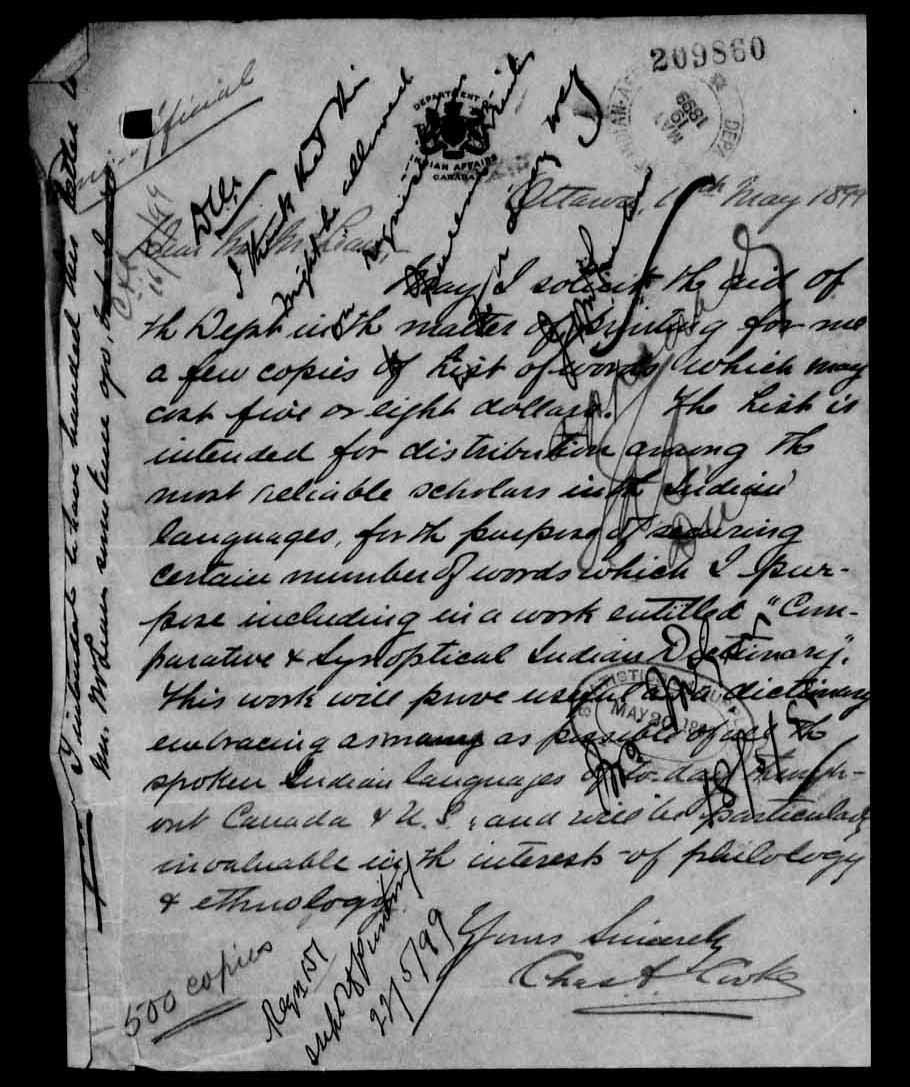 209860
DEPARTMENT OF
INDIAN AFFAIRS
CANADA
MAY 19 1899
Ottawa, May 1899
Dear
May I solicit the aid of
th Dept in th matter of printing for me
a few copies of List of words which may
cost five or eight dollars. The List is
intended for distribution among the
most reliable scholars in th Indian
languages, for th purpose of securing
certain number of words which I pur-
pose including in a work entitled "Com-
parative & Synoptical Indian Dictionary".
This work will prove useful as a dictionary
embracing as many as possible of all the
spoken Indian languages of to-day through-
out Canada & U.S., and will be particularly
invaluable in th interests of philology
& ethnology.
Yours Sincerely
Chas A. Cooke
500 copies
Supt of Printing
22/5/99
I think that this
might be allowed
18/5/99
MAY 20 1899
I intended to have handed this letter to
Mr. McLean